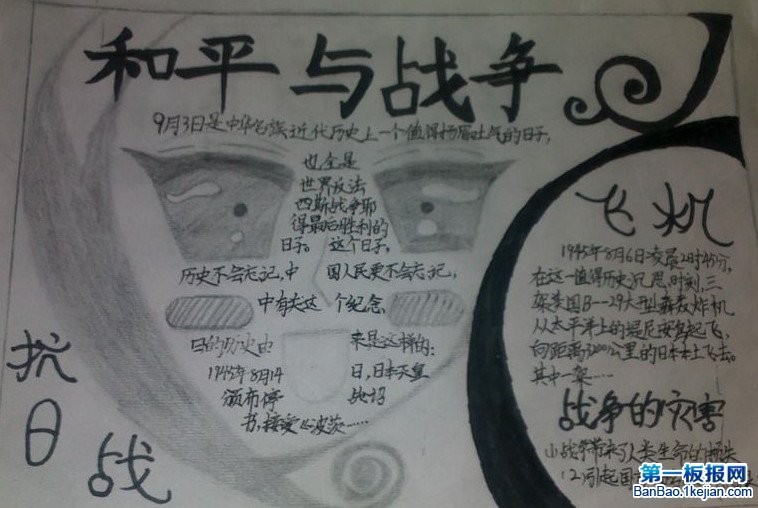 和平与战争
9月3日是中华民族近代历史上一个值得扬眉吐气的日子,
也全是
世界反法
西斯战争取
得最后胜利的
日子。 这个日子,
历史不会忘记,中 国人民更不会忘记,
中有关这 个纪念
日的历史由 来是这样的:
1945年8月14 日,日本天皇
颁布停 战诏
书,接受《波茨……
抗
日
战
飞机
1945年8月6日凌晨2时45分,
在这一值得历史沉思,时刻,三
架美国B-29大型轰炸机
从太平洋上的提尼安岛起飞,
向距离3200公里的日本本土飞去。
其中一架……
战争的灾害
(1)战争带来了人类生命的损失
(2)引起国
第一板报网
BanBao.1kejian.com